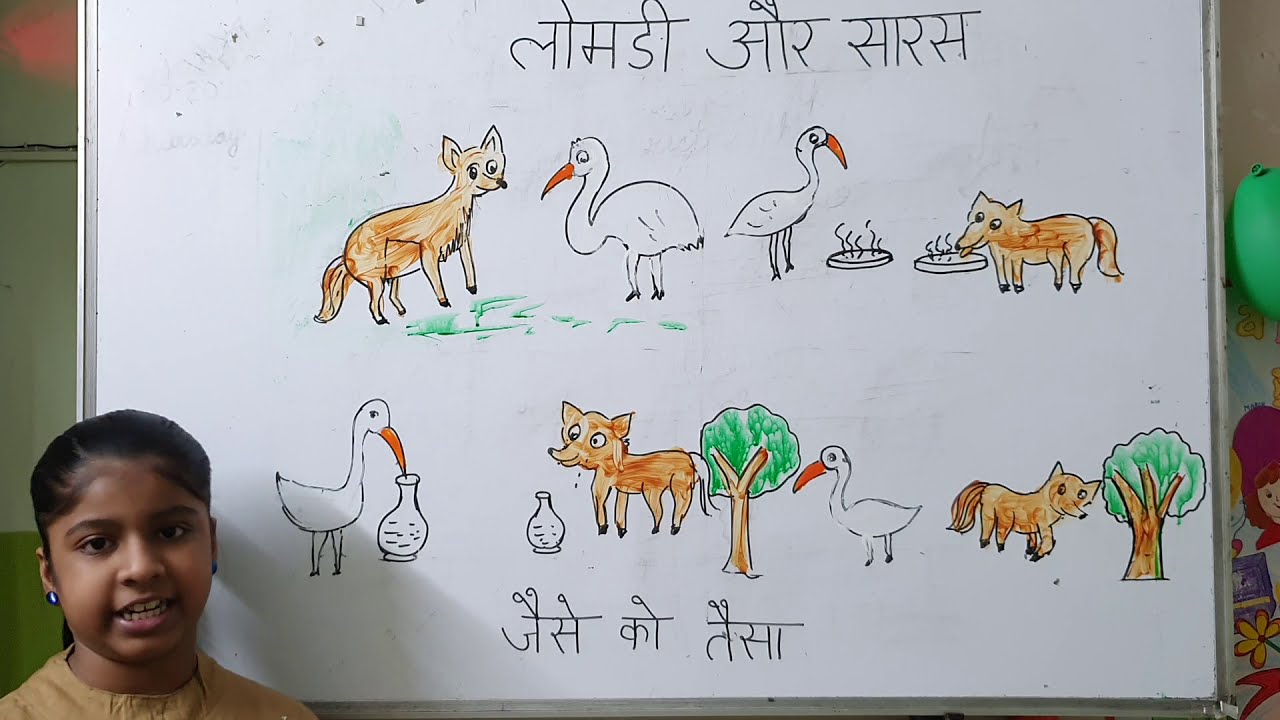 लोमडी और सारस
जैसे को तैसा